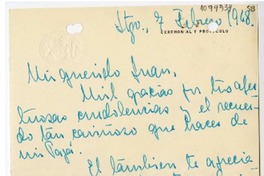 Stgo., 7 Febrero 1968.
CEREMONIAL Y PROTOCOLO
Mi querido Juan:
Mil gracias por tus afec
tuosas condolencias y el recuer
do tan cariñoso que haces de
mi Papá.
El también te aprecia